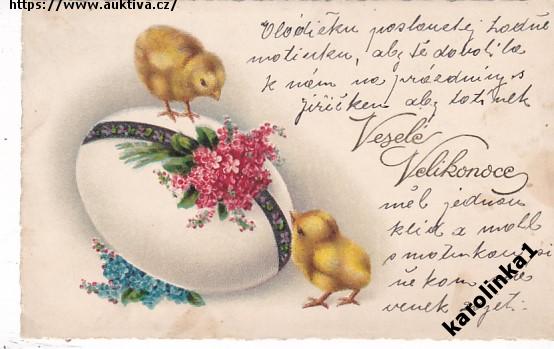 https://www.auktiva.cz/
Vládíčku poslouchej hodně
maminku, aby tě dovolila
k nám na prázdniny s
jiříčkem aby tatínek
Veselé
Velikonoce
měl jednou
klid a mohl
s maminkou si
někam
venek
karolinka1